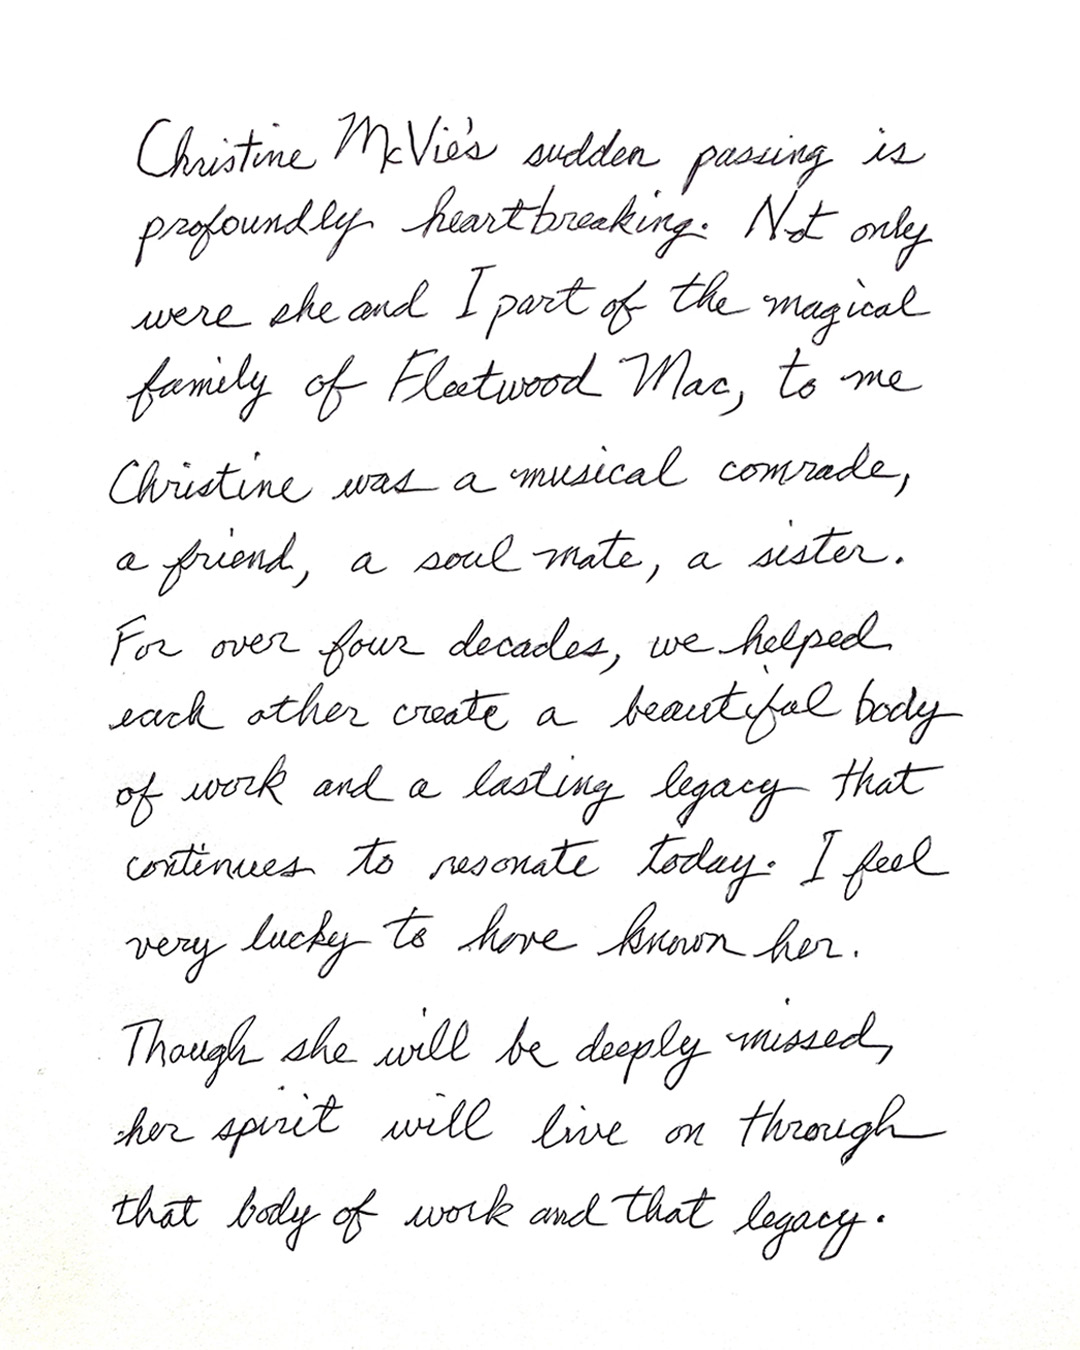 Christine McVie's sudden passing is
profoundly heartbreaking. Not only
were she and I part of the magical
family of Fleetwood Mac, to me
Christine was a musical comrade,
a friend, a soul mate, a sister.
For over four decades, we helped
each other create a beautiful body
of work and a lasting legacy that
continues to resonate today. I feel
very lucky to have known her.
Though she will be deeply missed,
her spirit will live on through
that body of work and that legacy.